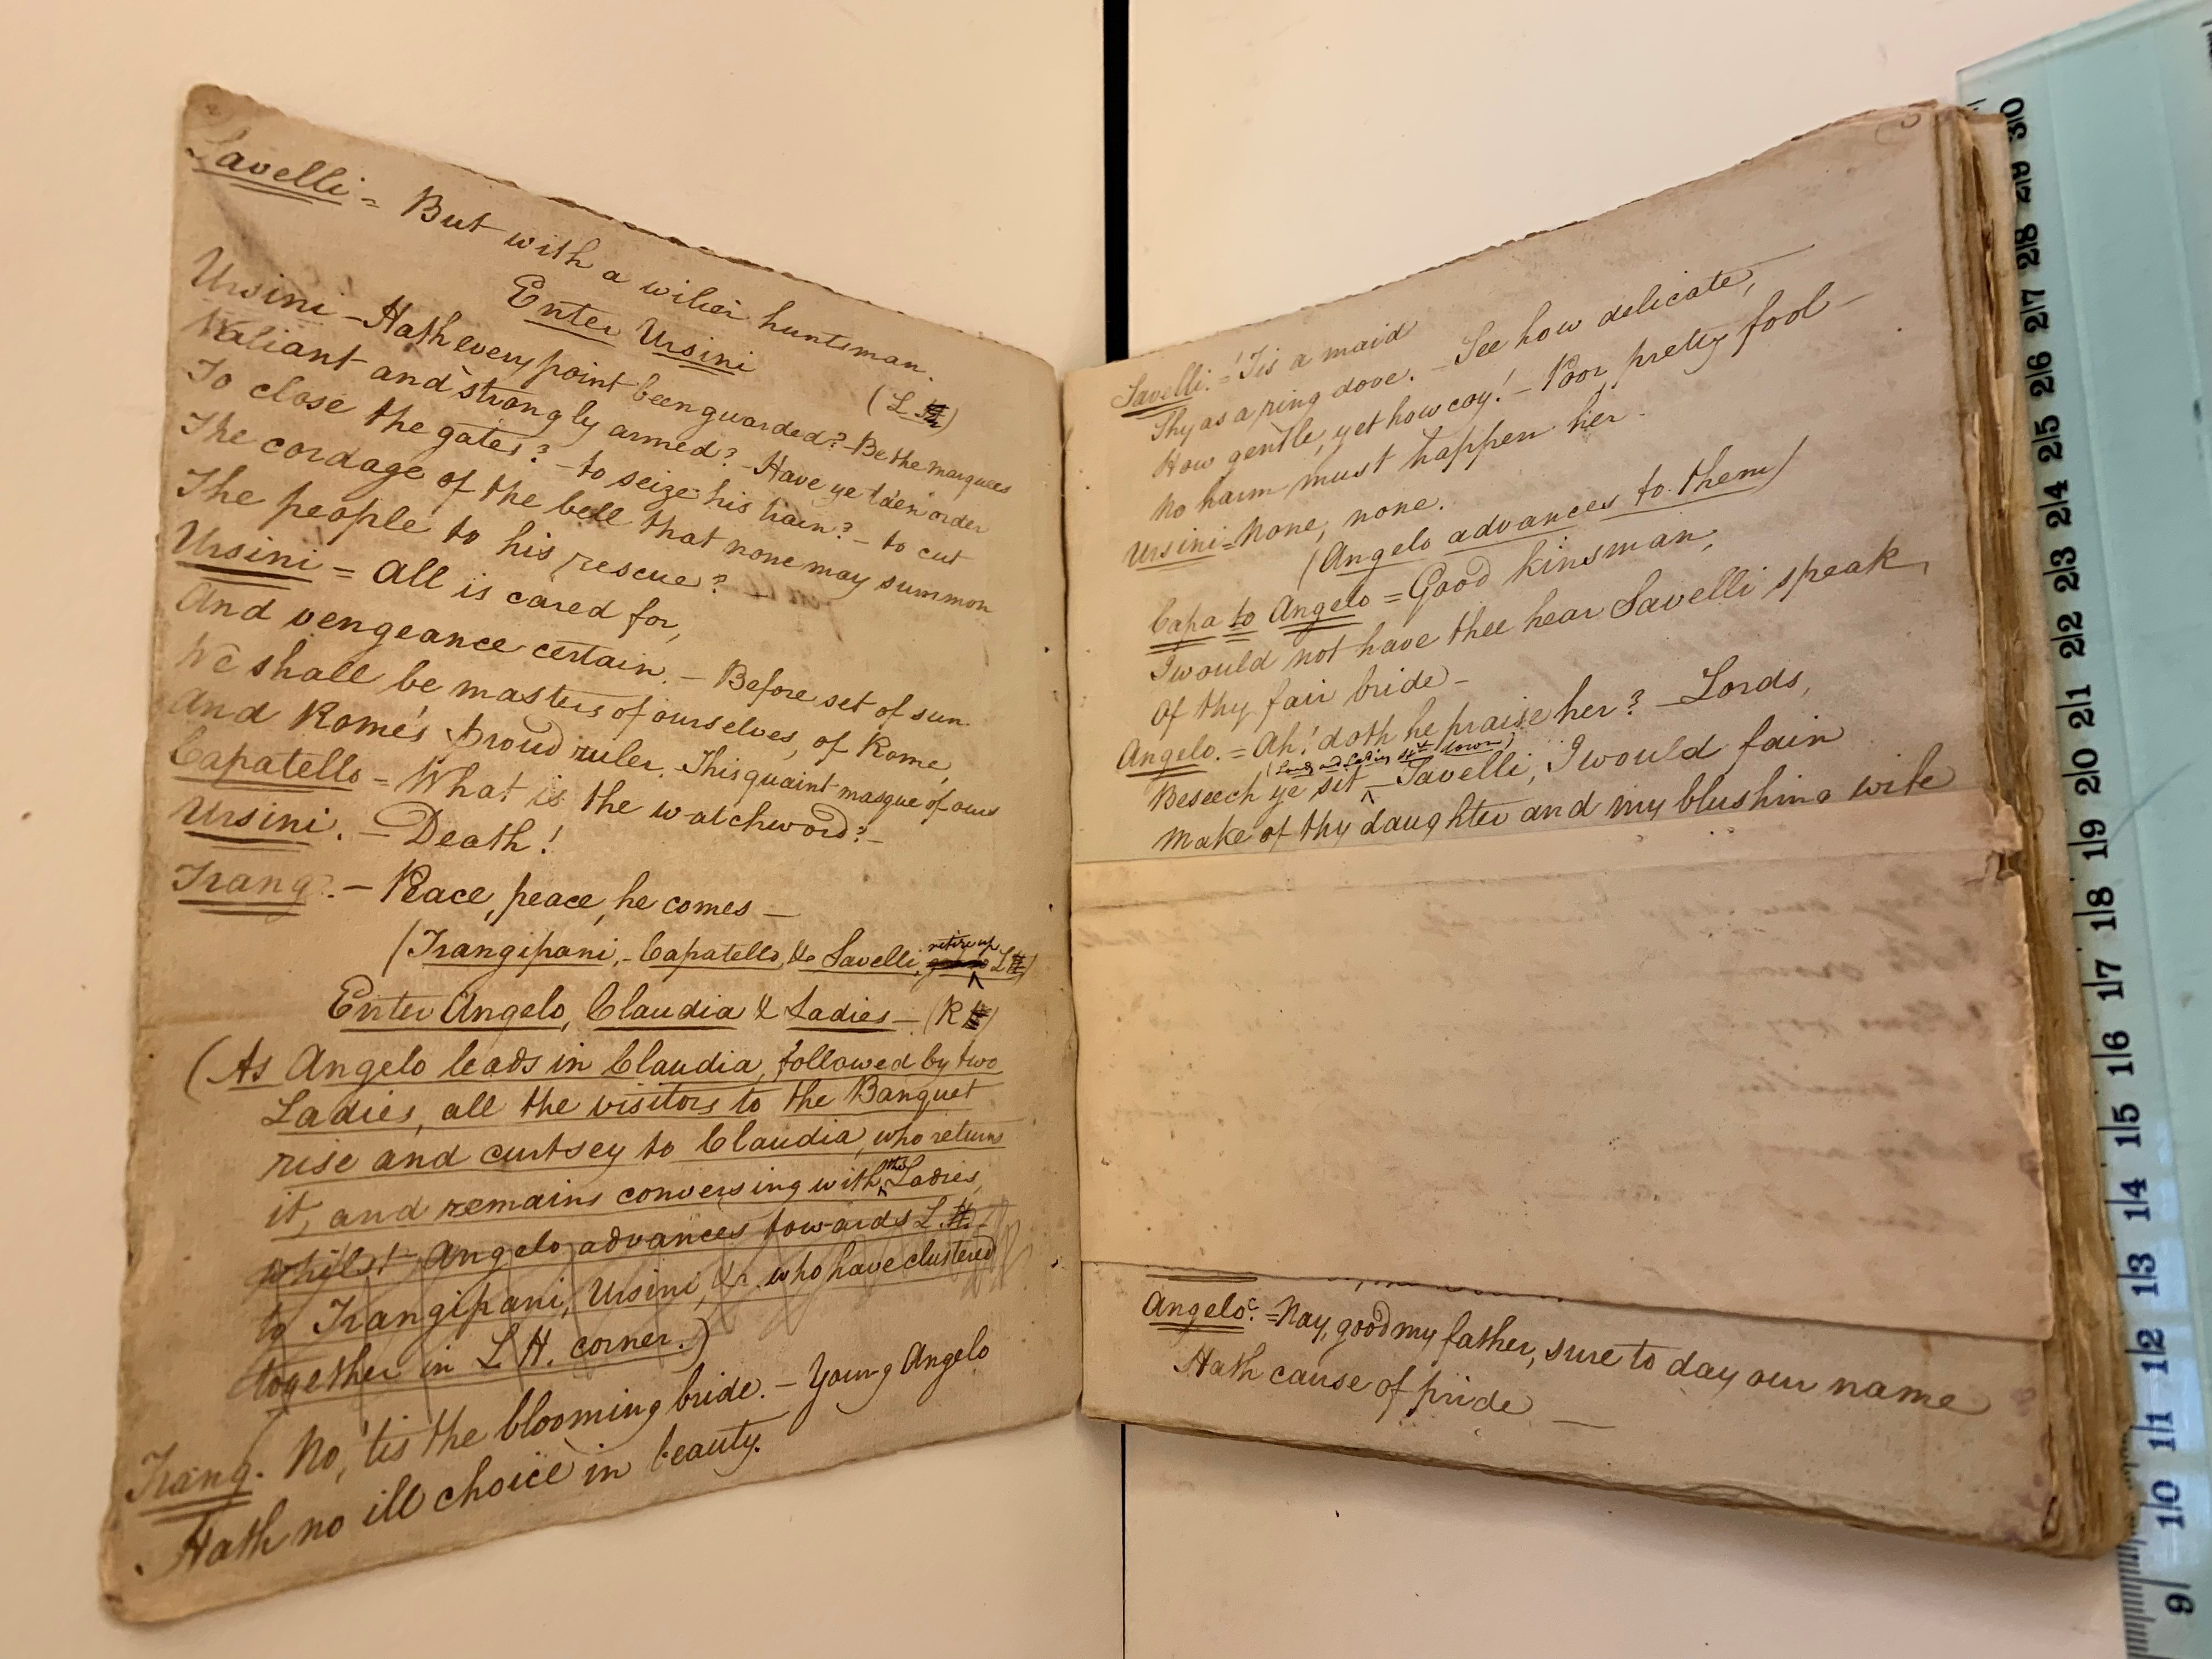 Savelli = But with a wilier huntsman.
Enter Ursini (L
Ursini - Hath every point been guarded? - Be the marquees
Valiant and strongly armed? - Have ye ta'en order
To close the gates? - to seize his train? - to cut
The cordage of the bell that none may summon
The people to his rescue? -
Ursini = All is cared for,
And vengeance certain. - Before set of sun
We shall be masters of ourselves, of Rome,
And Rome's proud ruler. This quaint masque of ours
Capatello = What is the watchword? -
Ursini. - Death!
Frang. - Peace, peace, he comes -
(Frangipani, - Capatello, & Savelli, retire up L
Enter Angelo, Claudia & Ladies - (R
(As Angelo leads in Claudia, followed by two
Ladies, all the visitors to the Banquet
rise and curtsey to Claudia, who returns
it, and remains conversing with the Ladies,
whilst Angelo advances towards L
to Frangipani, Ursini, &c. who have clustered
together in L H. corner.)
Frang. No, 'tis the blooming bride. - Young Angelo
Hath no ill choice in beauty.
Savelli. = 'Tis a maid
Shy as a ring dove. - See how delicate,
How gentle, yet how coy! - Poor pretty fool -
No harm must happen her.
Ursini = None, none.
(Angelo advances to them)
Capa to Angelo = Good kinsman,
I would not have thee hear Savelli speak
Of thy fair bride -
Angelo. = Ah! doth he praise her? - Lords,
(Lords and Ladies sit down)
Beseech ye sit - Savelli, I would fain
Make of thy daughter and my blushing wife
Angelo. = Nay, good my father, sure to day our name
Hath cause of pride -